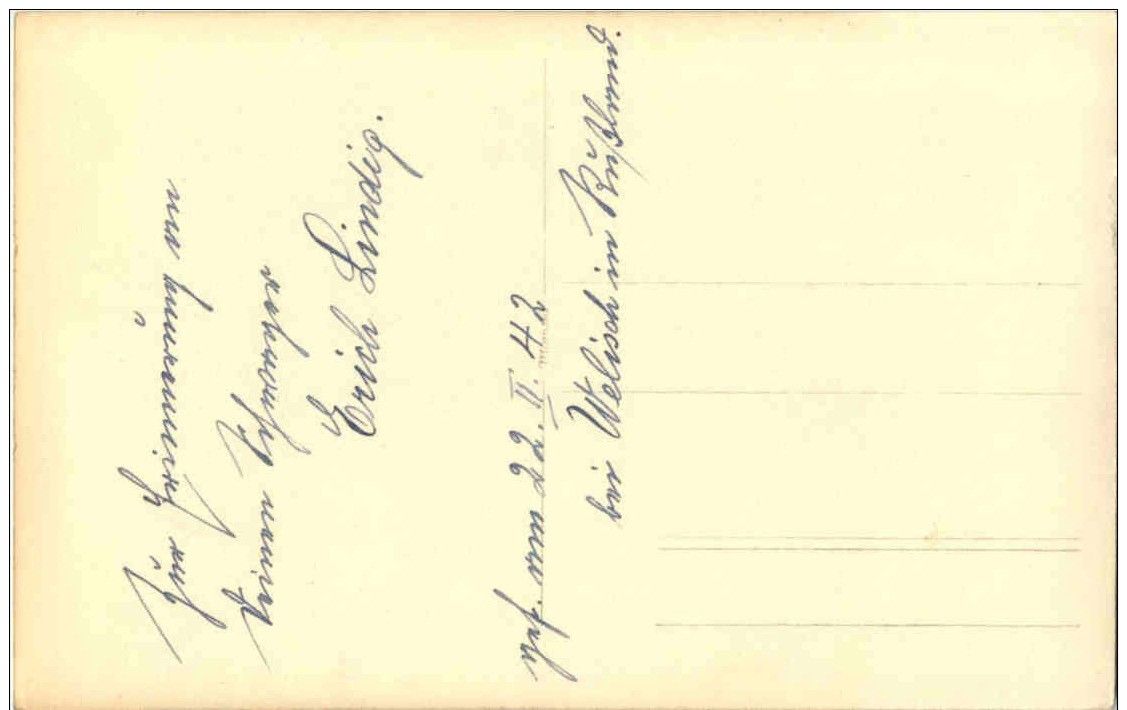 Zur Erinnerung an
Deinen Schwager
Erich Lindig.
gef. am 22. II. 42
bei Welisch in Rußland.